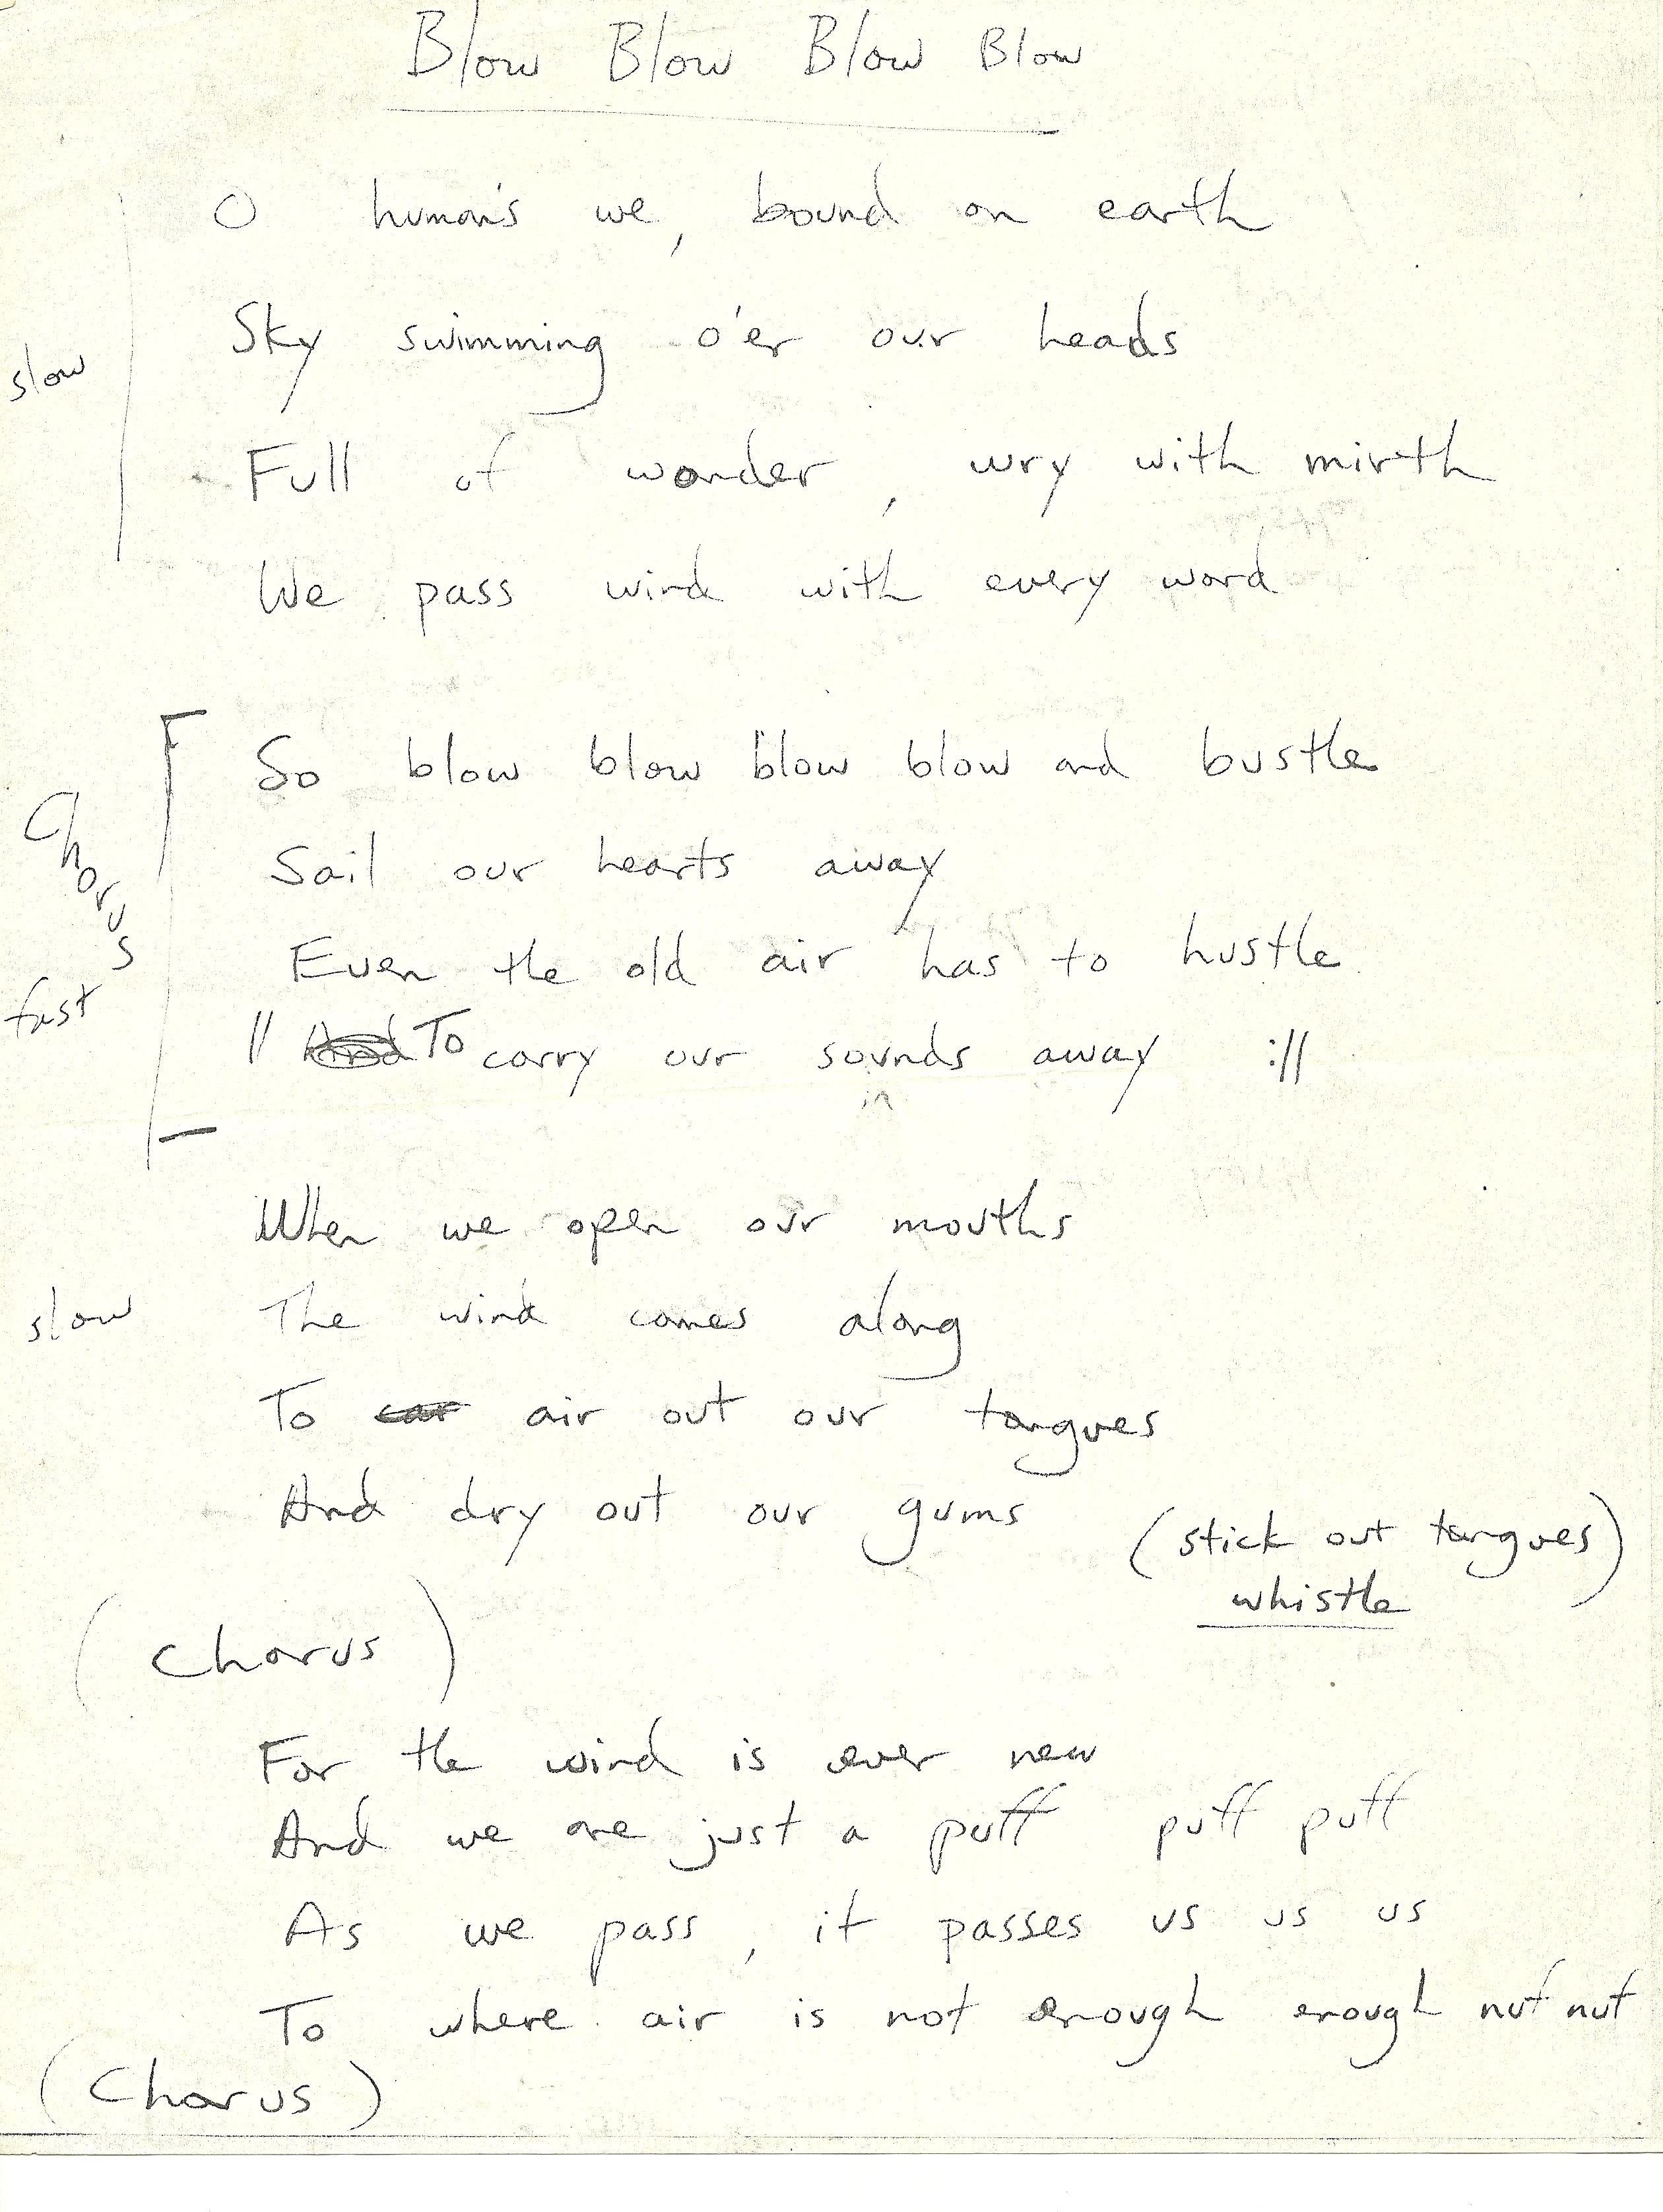 Blow Blow Blow Blow
O human's we, bound on earth
Sky swimming o'er our heads
slow
Full of wonder, wry with mirth
We pass wind with every word
So blow blow blow blow and bustle
Sail our hearts away
Chorus
Even the old air has to hustle
fast
// And To carry our sounds away ://
in
When we open our mouths
slow The wind comes along
To car air out our tongues
And dry out our gums
(stick out tongues)
whistle
(Chorus)
For the wind is ever new
And we are just a puff puff puff
As we pass, it passes us us us
To where air is not enough enough nuf nuf
(Chorus)